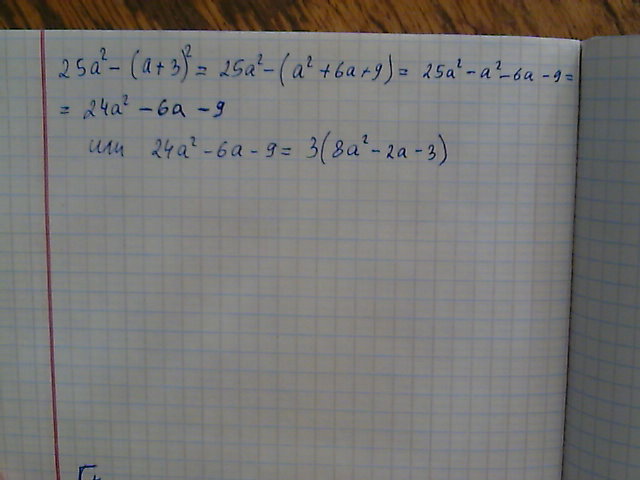 25a² - (a+3)² = 25a² - (a² + 6a + 9) = 25a² - a² - 6a - 9 =
= 24a² - 6a - 9
или 24a² - 6a - 9 = 3(8a² - 2a - 3)